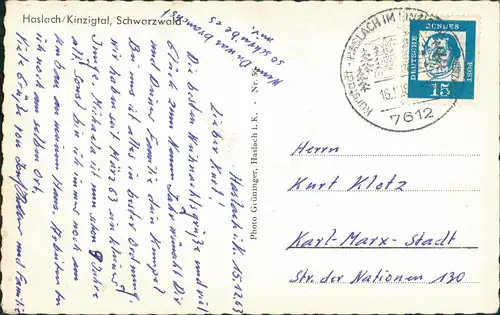 Haslach/Kinzigtal, Schwarzwald
Wenn Du was brauchst
so schreibe es
mir.
Haslach i. K. 15.12.63
Lieber Kurt!
Die besten Weihnachtsgrüße und viel
Glück zum Neuen Jahr wünscht Dir
u. Deiner Familie dein Kumpel
Bei uns ist alles in bester Ordnung.
Wir haben seit März 63 ein kleiner
Junge. Michaela ist nun schon 9 Jahre
alt. Sonst bin ich immer noch am
an meinem Haus. Arbeiten tu
ich noch am selben Ort.
Viele Grüße von und Familie
Photo Grüninger, Haslach i. K. - Nr.
HASLACH IM KINZIGTAL
16.12.63
7612
DEUTSCHE BUNDESPOST
15
Herrn
Kurt Klotz
Karl-Marx-Stadt
Str. der Nationen 130